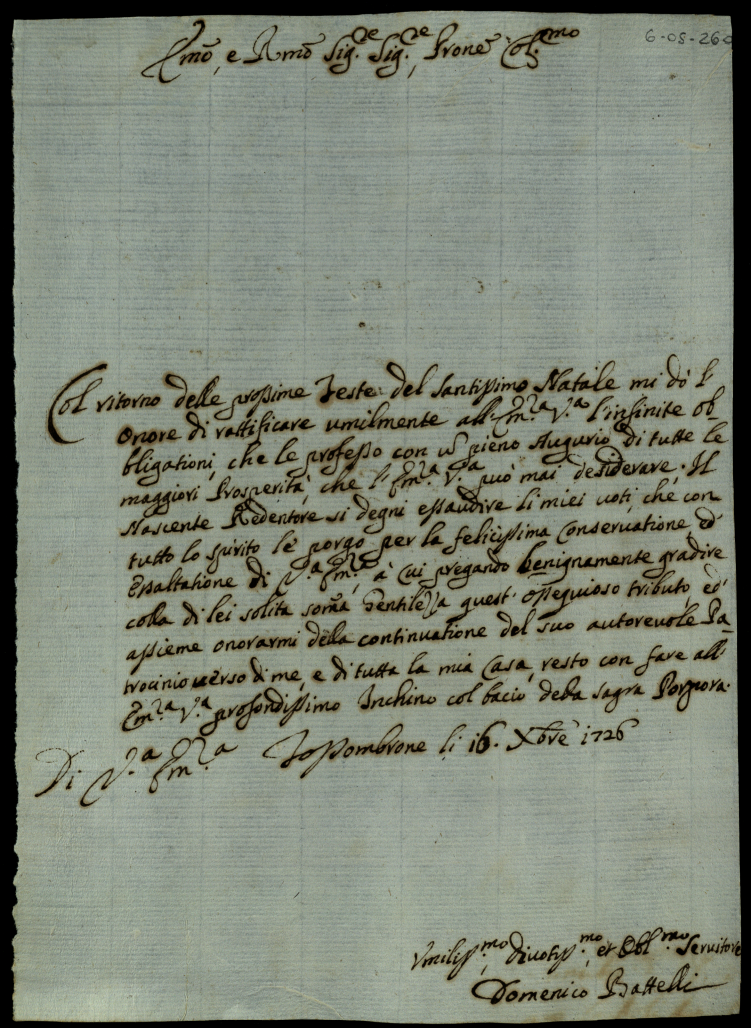 6-05-260
Emo, e Rmo Sig.re Sig.re, Prone Col.mo
Col ritorno delle prossime Feste del Santissimo Natale mi dò l'
onore di rattificare umilmente all'Em.za V.a l'infinite ob,
bligationi, che le professo con un pieno Augurio di tutte le
maggiori Prosperità, che l'Em.za V.a può mai desiderare. Il
Nascente Redentore si degni essaudire li miei voti, che con
tutto lo spirito le porgo per la felicissima Conservatione ed
Essaltatione di V.a Em.za, à cui pregando benignamente gradire
colla di lei solita somã Gentilezza quest'ossequioso tributo, ed
assieme onorarmi della continuatione del suo autorevole Pa=
trocinio verso di me, e di tutta la mia Casa, resto con fare all'
Em.za V.a profondissimo Inchino col bacio della sagra Porpora.
Di V.a Em.za Fossombrone li 16. Xbre 1726
Umiliss.mo, Divotiss.mo, et Obl.mo Servitore
Domenico Battelli